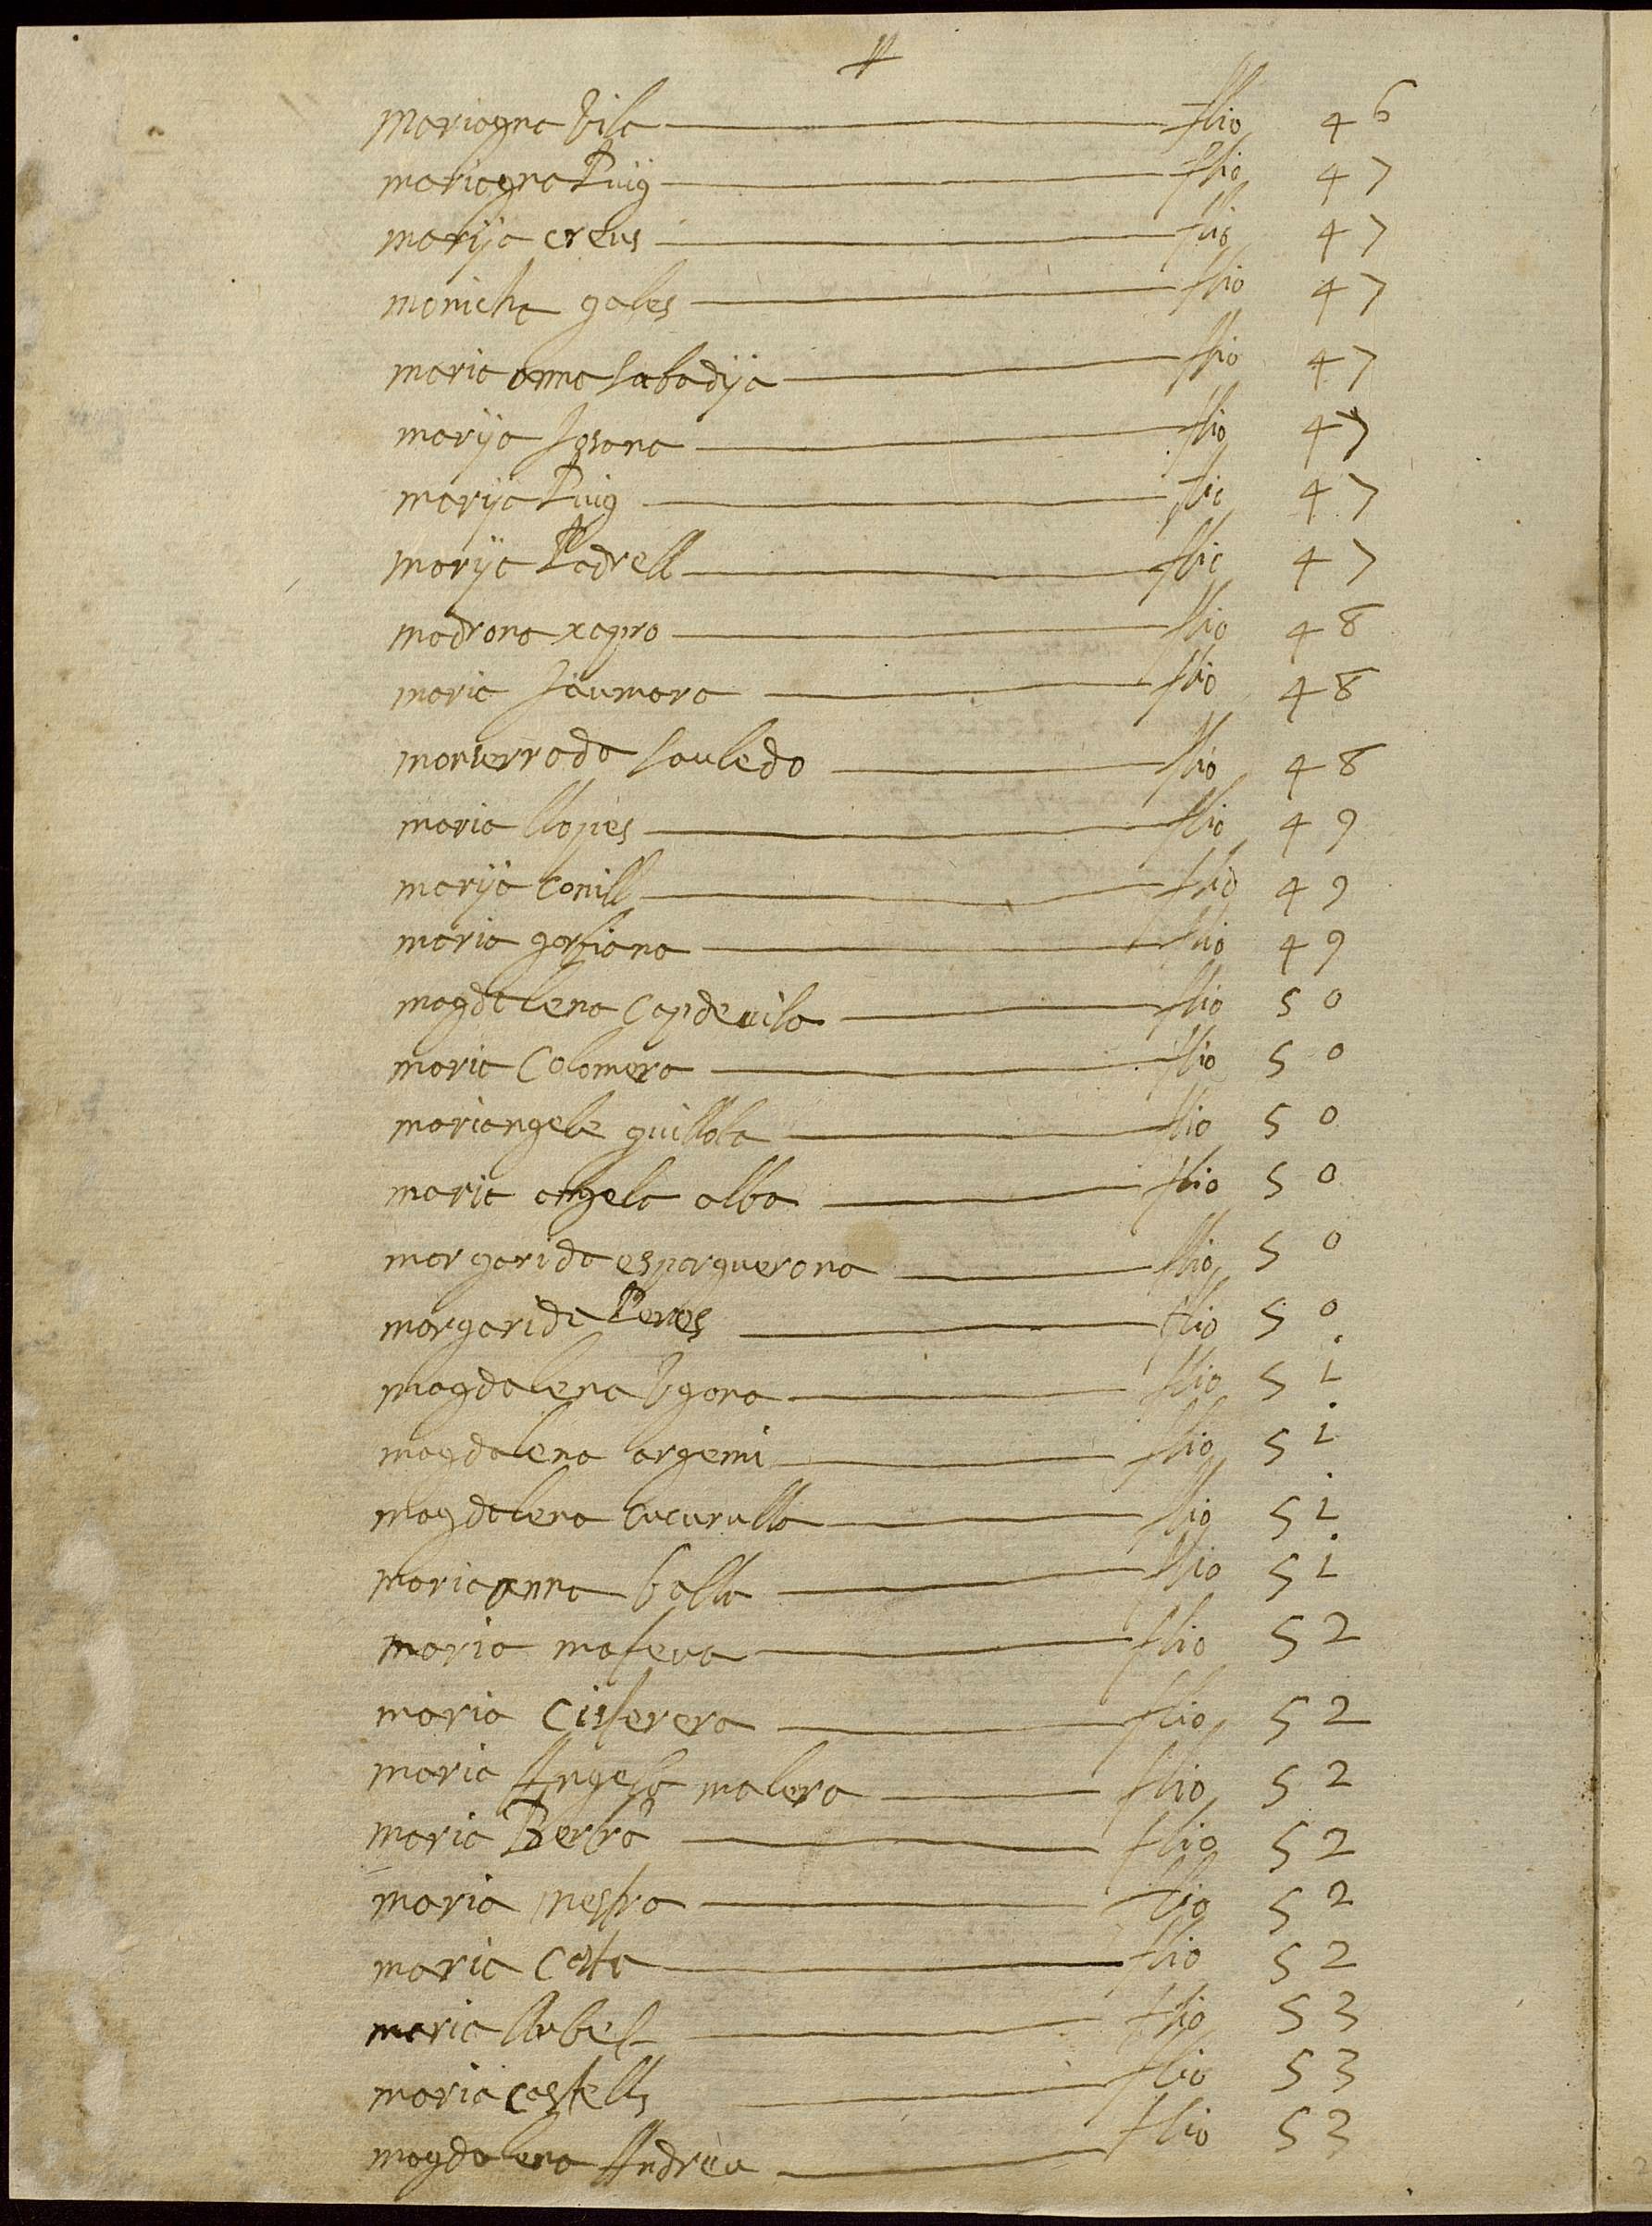 Mariagna Vila flio 46
mariagna Puig flio 47
marija creus flio 47
monicha gales flio 47
maria anna sabadija flio 47
marija Josana flio 47
marija Puig flio 47
marija Padrell flio 47
madrona xapro flio 48
maria Jaumara flio 48
monserrada sauleda flio 48
maria llopies flio 49
marija conill flio 49
maria garfiana flio 49
magdalena Capdeuila flio 50
maria Colomera flio 50
mariangela guillola flio 50
maria angela alba flio 50
margarida esparguerona flio 50
margarida Peres flio 50
magdalena Vgana flio 51
magdalena argemi flio 51
magdalena cucurulla flio 51
marianna balla flio 51
maria mateua flio 52
maria Cisterera flio 52
maria Angela malera flio 52
maria Berbra flio 52
maria mestra flio 52
maria Costa flio 52
maria llubet flio 53
maria castells flio 53
magdalena Andreu flio 53